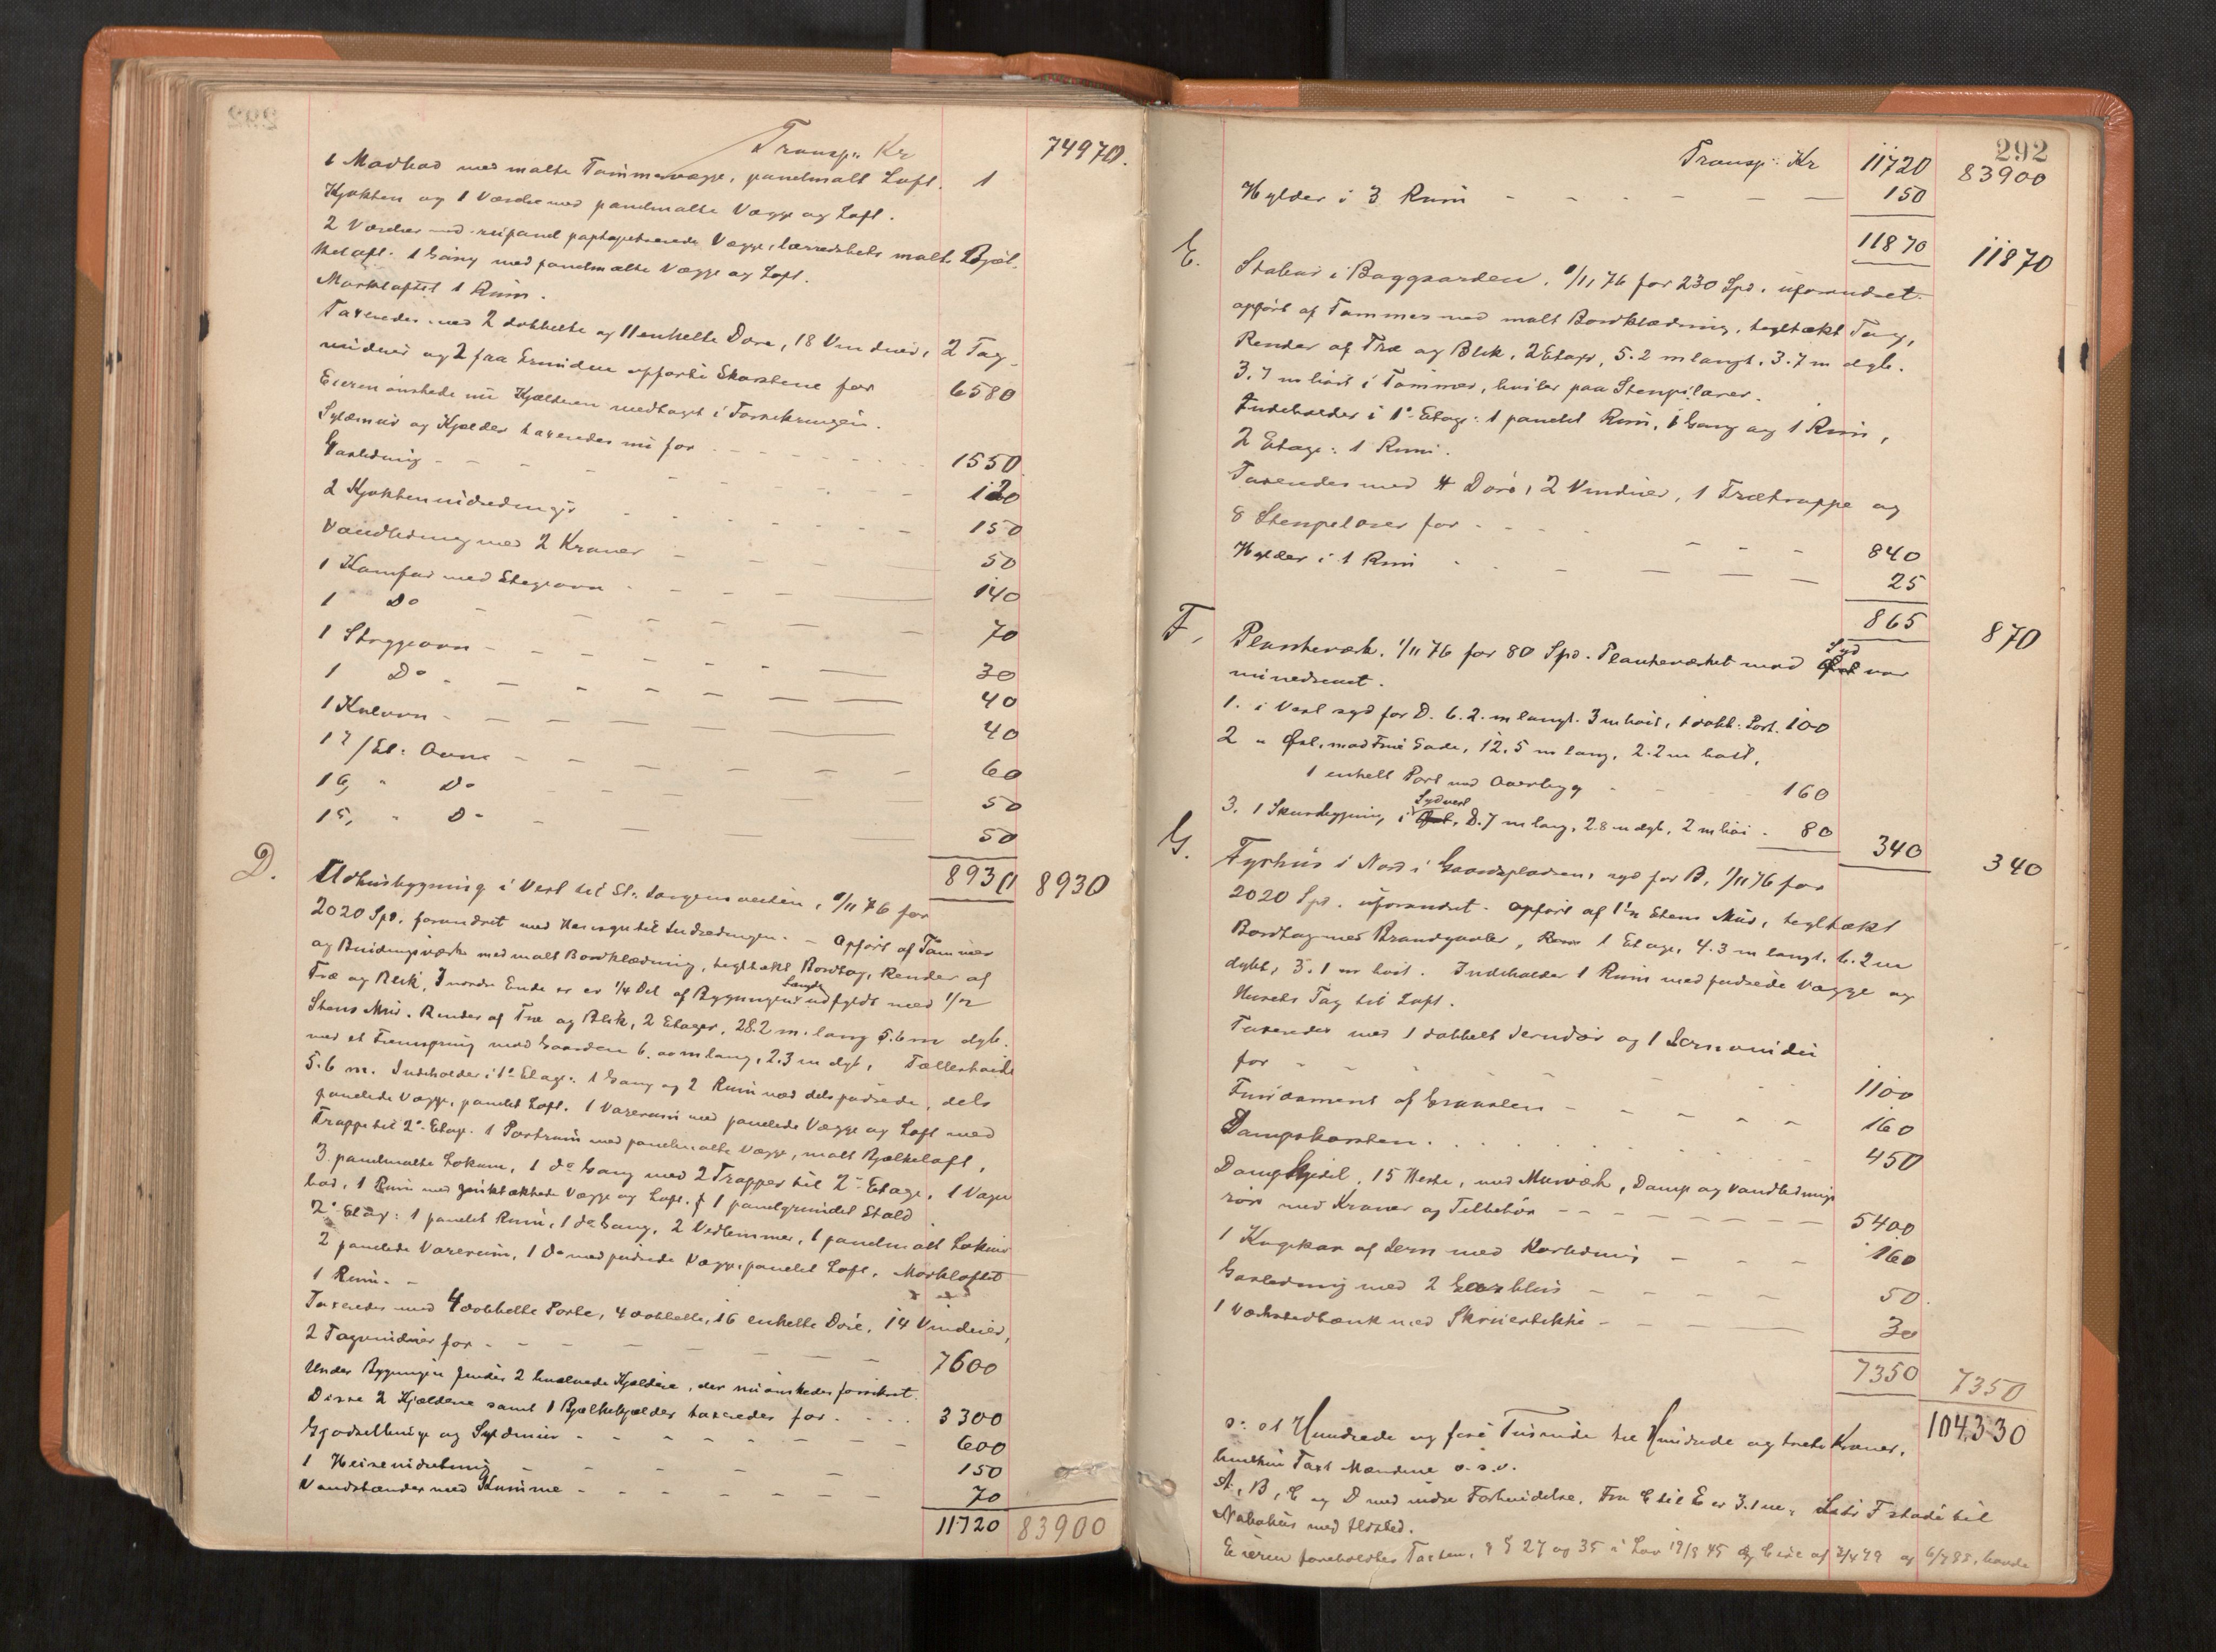 Transp: Kr 74970.
1 Madbod med malte Tømmervægge, panelmalt Loft. 1
Kjøkken og 1 Værelse med panelmalte Vægge og Loft.
2 Værelser med papbetrukne Vægge, malt Bjæl-
keloft. 1 Gang med panelmalte Vægge og Loft.
Mørkloftet 1 Rum.
Taxeredes med 2 dobbelte og 11 enkelte Døre, 18 Vinduer, 2 Tag-
vinduer og 2 fra Grunden opførte Skorstene for 6580
Eieren ønskede nu Kjælderen medtaget i Forsikringen.
Syldmur og Kjælder taxeredes nu for 1550
Gasledning 120
2 Kjøkkenindredninger 150
Vandledning med 2 Kraner 50
1 Komfur med Stegeovn 140
1 Do 70
1 Strygeovn 30
1 Do 40
1 Kulovn 40
1 7/Et: Ovne 60
1 6, " Do 50
1 5, " Do 50
8930 8930
D. Udhusbygning i Vest til St: Jørgensveiten, 1/11 76 for
2020 Spd. forandret med Hensyn til Indredningen. - Opført af Tømmer
og Bindingsværk med malt Bordklædning, tegltækt Bordtag, Render af
Træ og Blik, I nordre Ende er ca 1/4 Del af Bygningens Længde udfyldt med 1/2
Stens Mur. Render af Træ og Blik, 2 Etager, 28.2 m. lang 5.6 m dyb.
med et Fremspring mod Gaarden 6. m lang, 2.3 m dyb, Fælleshøide
5.6 m. Indeholder i 1e Etage: 1 Gang og 2 Rum med dels pudsede, dels
panelede Vægge, panelet Loft. 1 Varerum med panelede Vægge og Loft med
Trappe til 2e Etage. 1 Portrum med panelmalte Vægge, malt Bjælkeloft,
3 panelmalte Lokum, 1 do Gang med 2 Trapper til 2e Etage, 1 Vogn
bod, 1 Rum med zinktækkede Vægge og Loft. 1 panelgrundet Stald
2e Etage: 1 panelet Rum, 1 do Gang, 2 Vedlemmer, 1 panelmalt Lokum
2 panelede Varerum, 1 do med pudsede Vægge, panelet Loft, Mørkloftet
1 Rum. -
Taxeredes med 4 dobbelte Porte, 4 dobbelte, 16 enkelte Døre, 14 Vinduer,
2 Tagvinduer for 7600
Under Bygningen findes 2 hvælvede Kjældere, der nu ønskedes forsikret.
Disse 2 Kjældere samt 1 Bjælkekjælder taxeredes for 3300
Gjødselbinge og Syldmur 600
1 Heiseindretning 150
Vandstænder med Kumme 70
11720 83900
292
Transp: Kr 11720 83900
Hylder i 3 Rum 150
11870 11870
E. Stabur i Baggaarden, 1/11 76 for 230 Spd. uforandret.
opført af Tømmer med malt Bordklædning, tegltækt Tag,
Render af Træ og Blik, 2 Etager, 5.2 m langt, 3.7 m dybt.
3.7 m høit i Tømmer, hviler paa Stenpilarer.
Indeholder i 1e Etage: 1 panelet Rum, 1 Gang og 1 Rum,
2 Etage: 1 Rum.
Taxeredes med 4 Døre, 2 Vinduer, 1 Trætrappe og
8 Stenpilarer for 840
Hylder i 1 Rum 25
865 870
F. Plankeværk. 1/11 76 for 80 Spd. Plankeværket mod Syd var
nu nedrevet.
1. i Vest syd for D. 6.2. m langt. 3 m høit, 1 dobb: Port. 100
2 " Øst, mod Frue Gade, 12.5 m lang, 2.2 m høit,
1 enkelt Port med Overbygg 160
3. 1 Skurbygning i Sydvest, D. 7 m lang, 2.8 m dyb, 2 m høi 80
340 340
G. Fyrhus i Nord i Gaardspladsen, syd for B, 1/11 76 for
2020 Spd. uforandret. Opført af 1/2 Stens Mur, tegltækt
Bordtag med Brandgavler, 1 Etage, 4.3 m langt. 6.2 m
dybt, 3.1 m høit. Indeholder 1 Rum med pudsede Vægge og
Husets Tag til Loft.
Taxeredes med 1 dobbelt Jerndør og 1 Jernvindu
for 1100
Fundament af Graasten 160
Dampskorsten 450
Dampkjedel, 15 Heste, med Murværk, Damp og Vandlednings
rør med Kraner og Tilbehør 5400
1 Kogekar af Jern med Rørledning 160
Gasledning med 2 Gasblus 50
1 Værkstedbænk med Skruestikke 30
7350 7350
104,330
o: et Hundrede og fire Tusinde tre Hundrede og treti Kroner,
hvilken Taxt Mændene o.s.v.
A, B, C og D med indre Forbindelse. Fra C til E er 3.1 m, Litr F stødt til
Nabohus med Ildsted.
Eieren foreholdtes Taxten, § 27 og 35 i Lov 19/8 45 og Circ af 3/4 79 og 6/7 88, havde